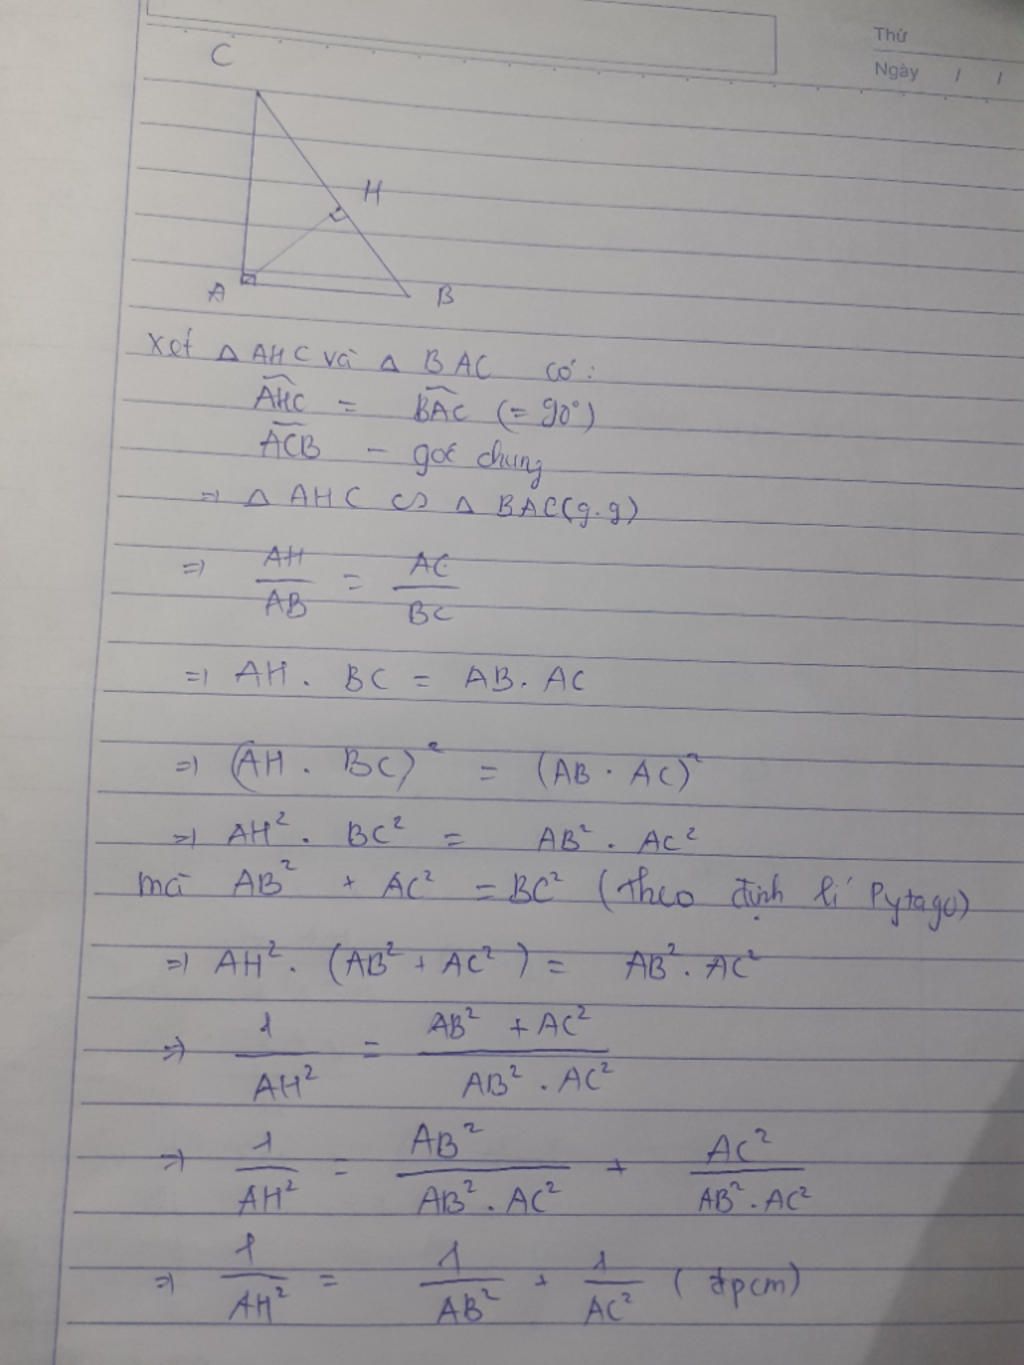 Thứ
Ngày / /
C
H
A
B
Xét △ AHC và △ BAC có:
AHC = BAC (= 90°)
ACB - góc chung
=> △ AHC ∽ △ BAC (g.g)
=> AH/AB = AC/BC
=> AH . BC = AB . AC
=> (AH . BC)² = (AB . AC)²
=> AH² . BC² = AB² . AC²
mà AB² + AC² = BC² (Theo định lí Pytago)
=> AH² . (AB² + AC²) = AB² . AC²
=> 1/AH² = AB² + AC²/AB² . AC²
=> 1/AH² = AB²/AB² . AC² + AC²/AB² . AC²
=> 1/AH² = 1/AB² + 1/AC² (đpcm)